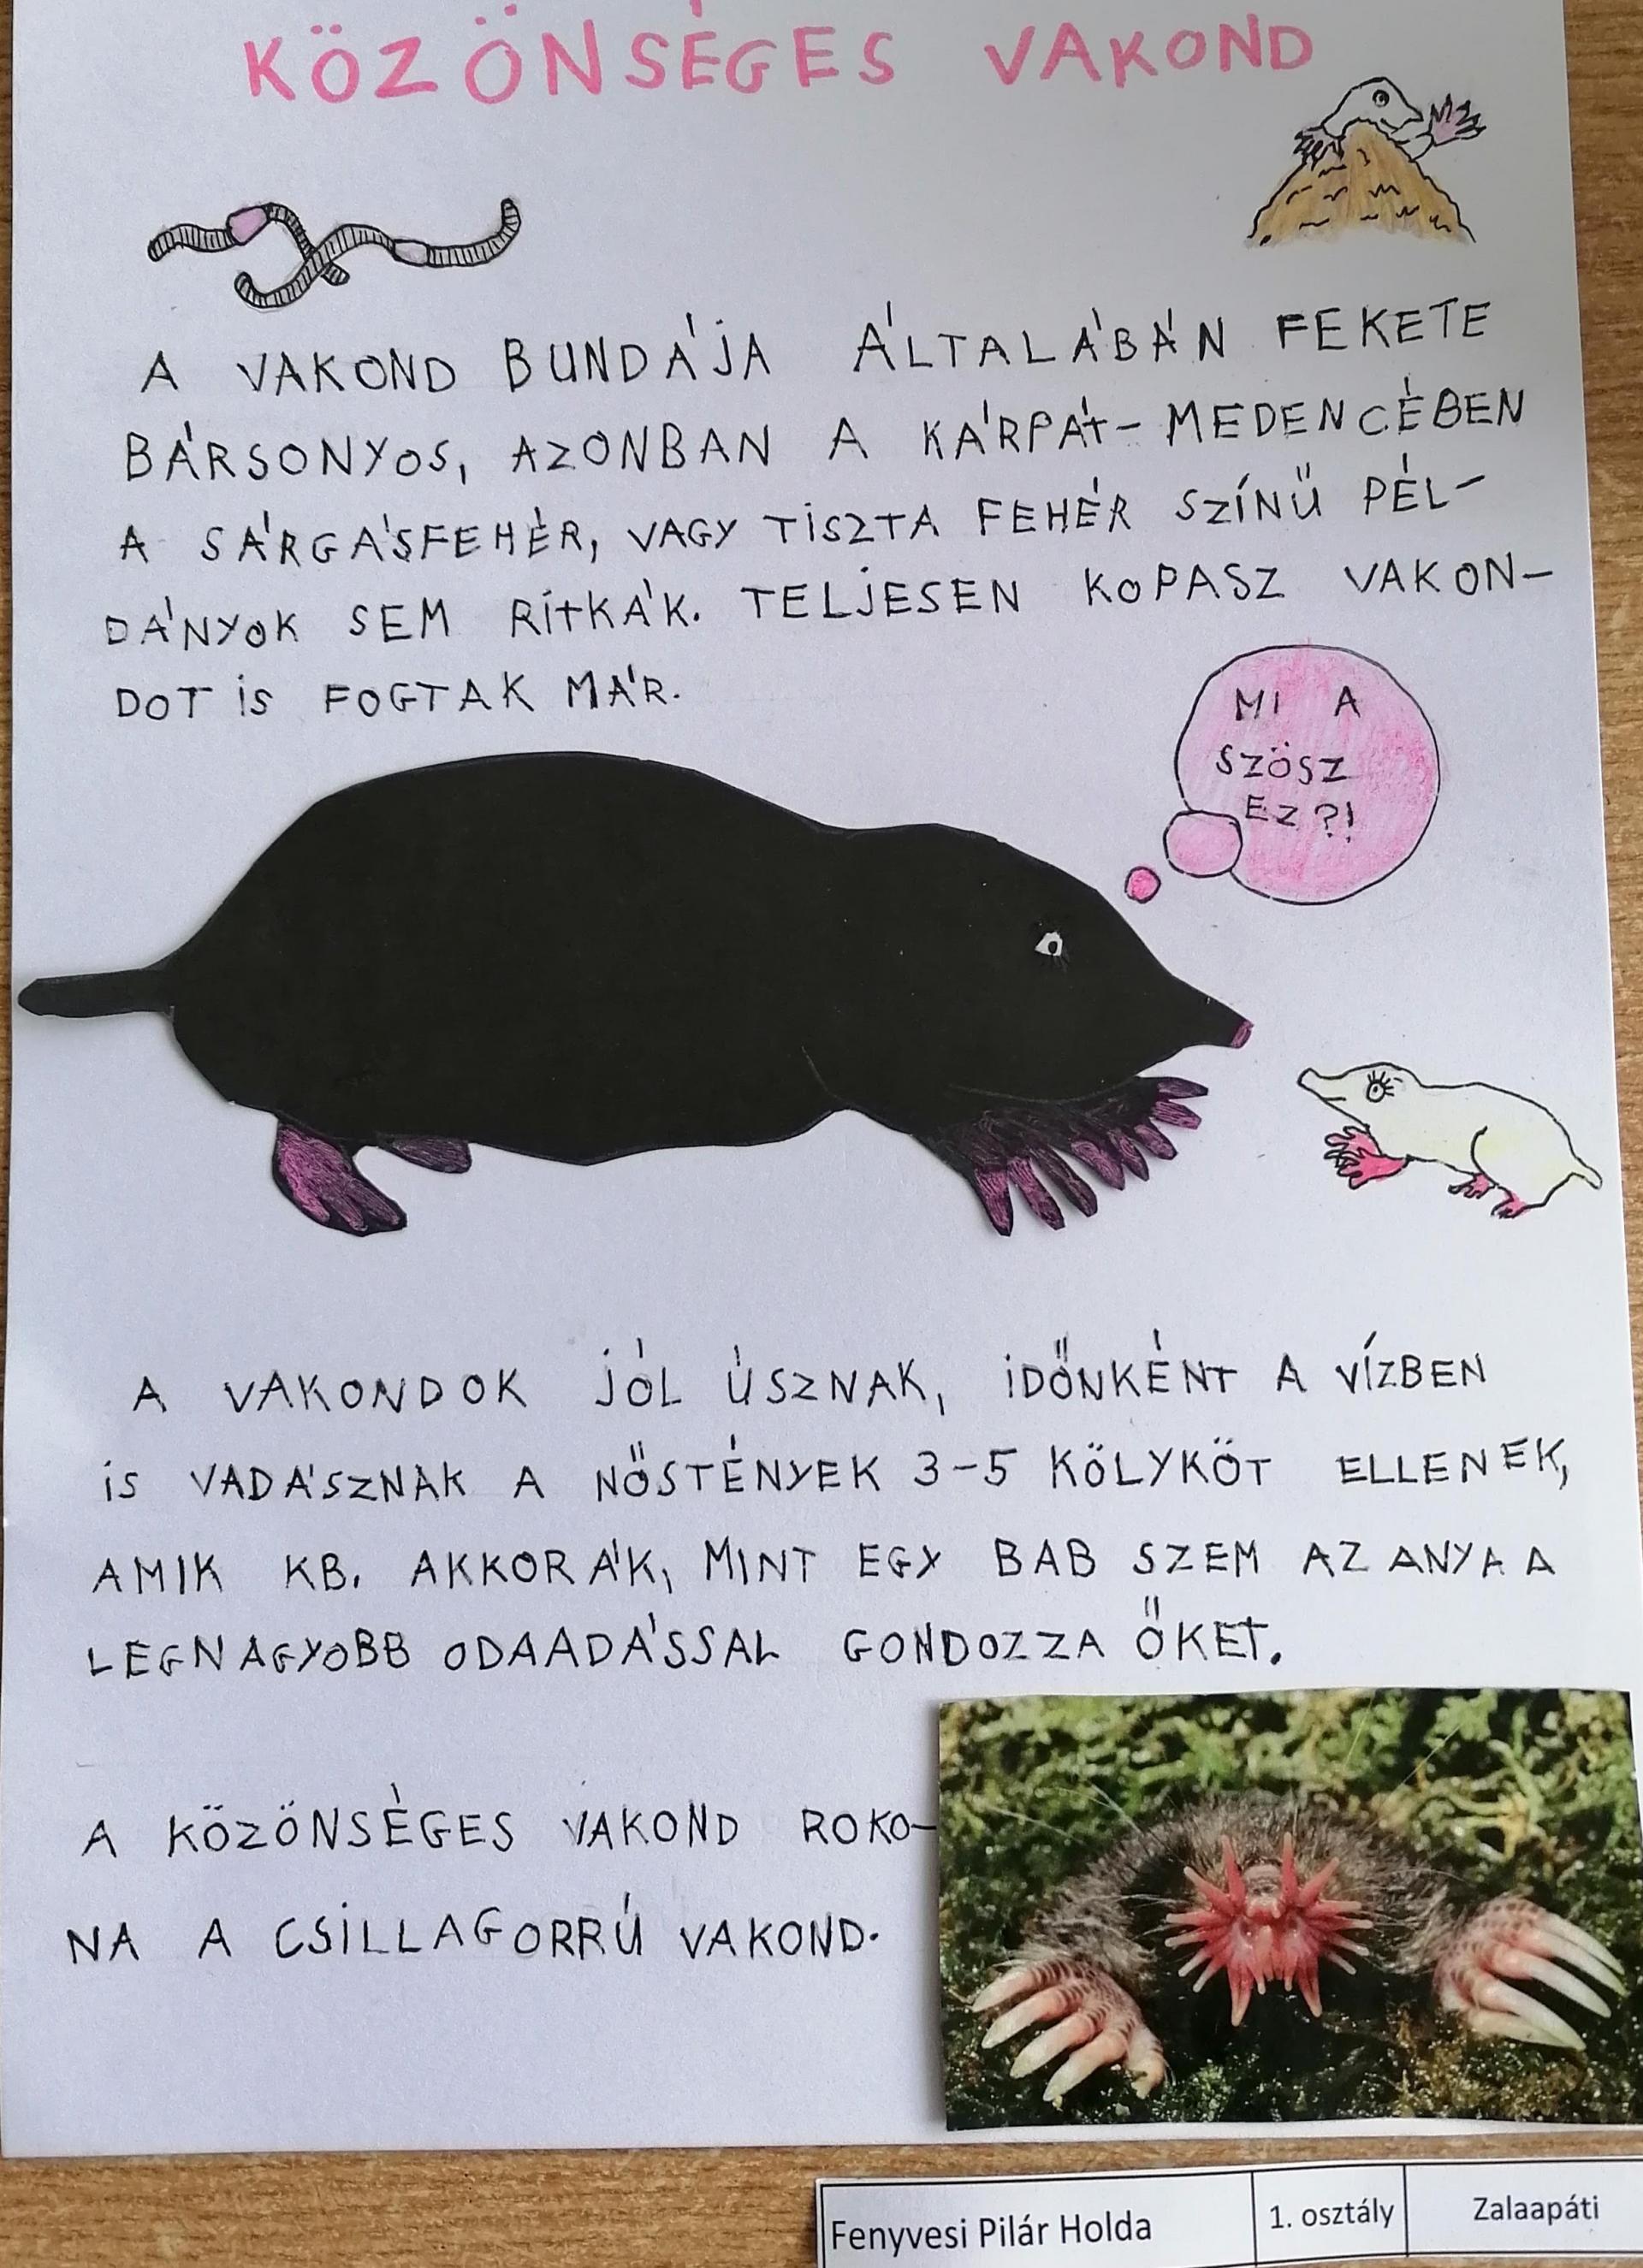 KÖZÖNSÉGES VAKOND
A VAKOND BUNDÁJA ÁLTALÁBÁN FEKETE
BÁRSONYOS, AZONBAN A KÁRPÁT-MEDENCÉBEN
A SÁRGÁSFEHÉR, VAGY TISZTA FEHÉR SZÍNŰ PÉL-
DÁNYOK SEM RÍTKÁK. TELJESEN KOPASZ VAKON-
DOT IS FOGTAK MÁR.
MI A
SZÖSZ
EZ?!
A VAKONDOK JÓL ÚSZNAK, IDŐNKÉNT A VÍZBEN
IS VADÁSZNAK A NŐSTÉNYEK 3-5 KÖLYKÖT ELLENEK,
AMIK KB. AKKORÁK, MINT EGY BAB SZEM AZ ANYA A
LEGNAGYOBB ODAADÁSSAL GONDOZZA ŐKET.
A KÖZÖNSÉGES VAKOND ROKO-
NA A CSILLAGORRÚ VAKOND.
Fenyvesi Pilár Holda 1. osztály Zalaapáti